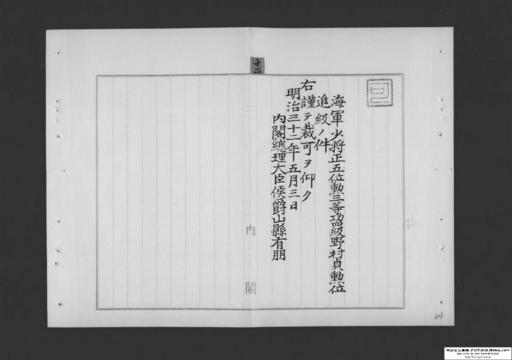 海軍少将正五位勲三等功四級野村貞勲位
進級ノ件
右謹テ裁可ヲ仰ク
明治三十二年五月三日
内閣總理大臣侯爵山縣有朋
内閣
十二